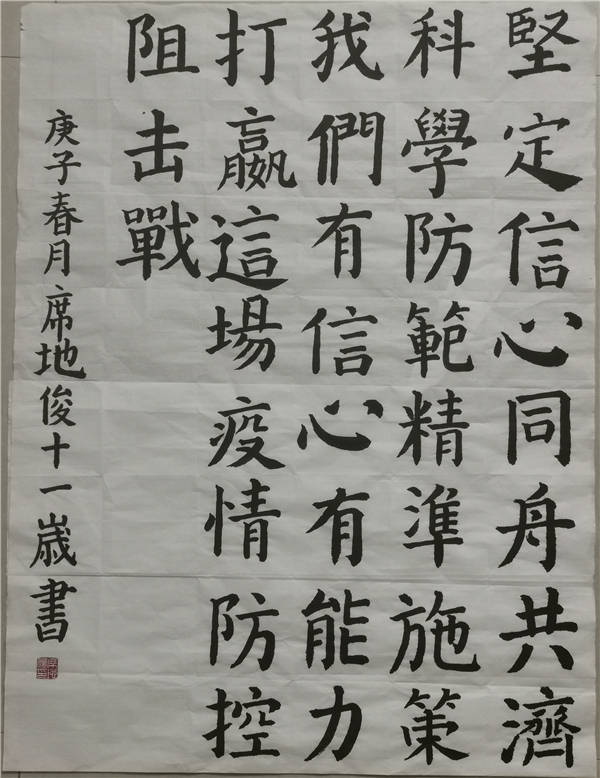 堅定信心同舟共濟
科學防範精準施策
我們有信心有能力
打贏這場疫情防控
阻击戰
庚子春月席地俊十一歲書